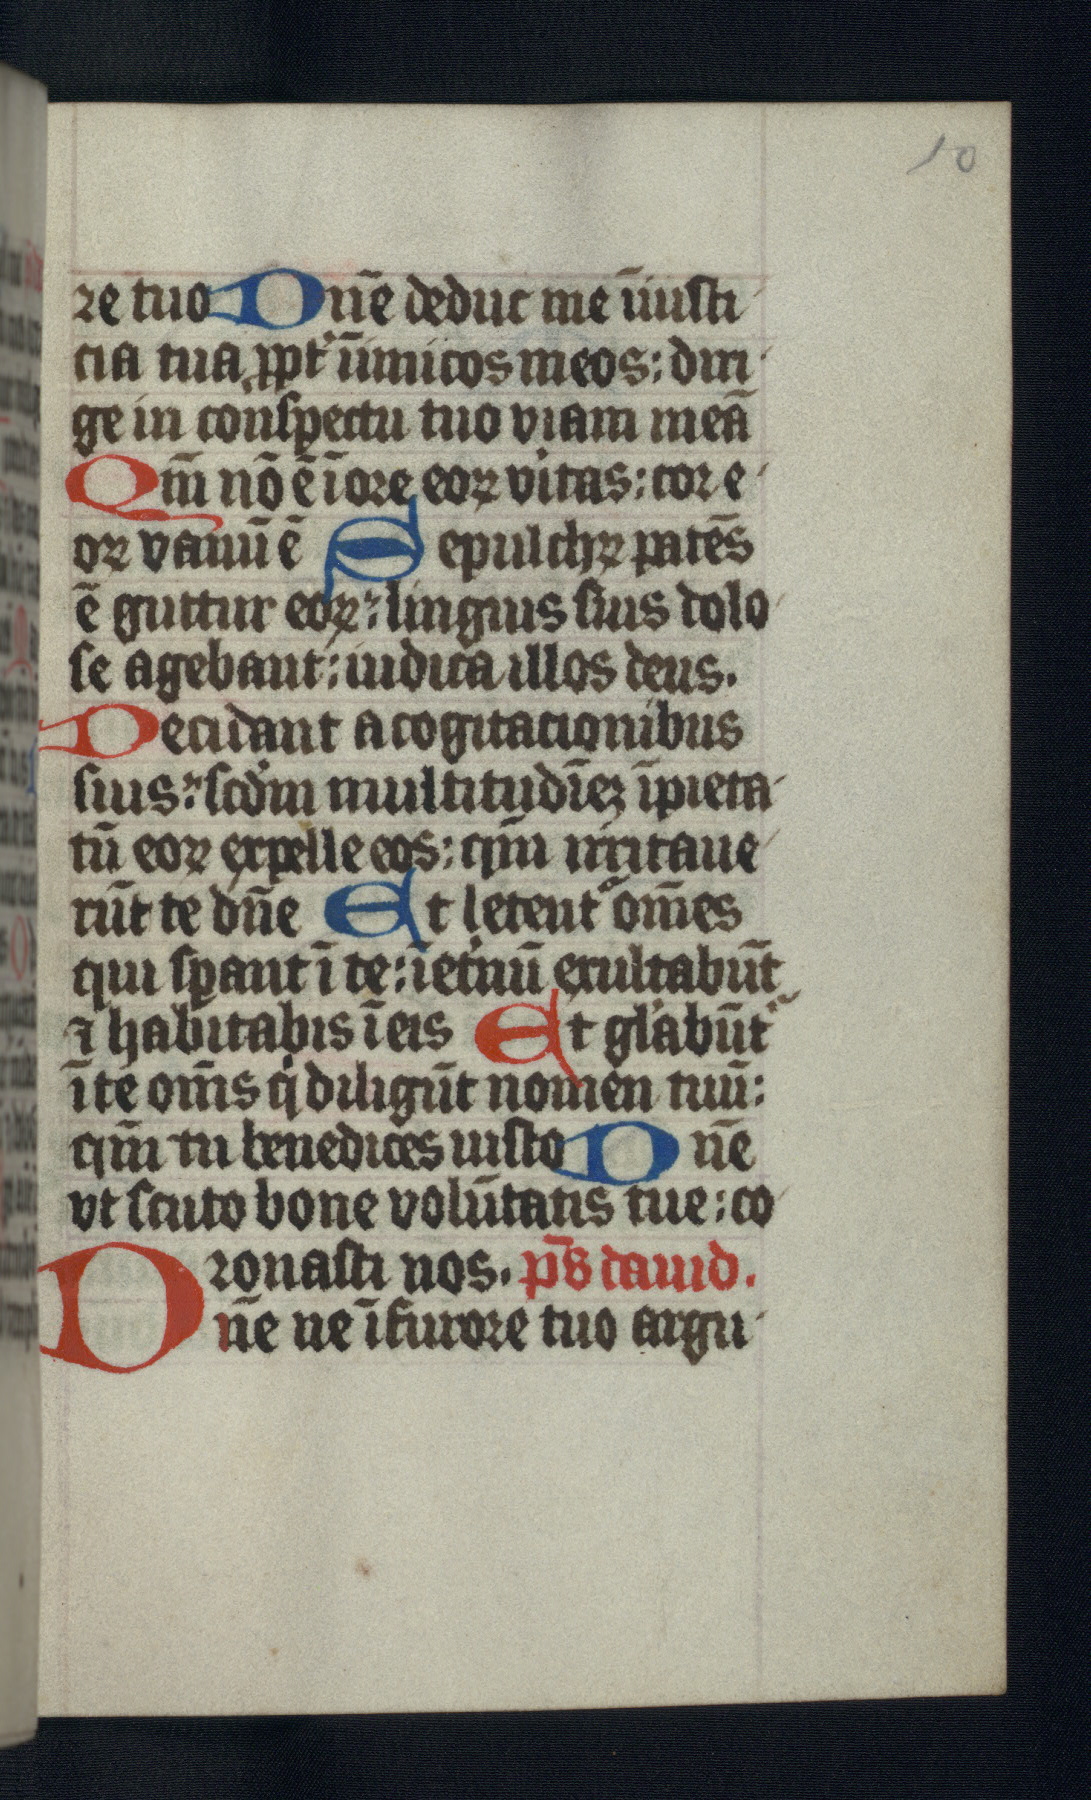 10
re tuo Dn̄e deduc me ī iusti
cia tua ꝓpt̾ īimicos meos: diri
ge in conspectu tuo viam meā
Qm̄ nō ē ī ore eoꝝ vitas: cor e
oꝝ vanū ē Sepulchꝝ patēs
ē guttur eoꝝ: linguis suis dolo
se agebant: iudica illos deus.
Decidant a cogitacionibus
suis: scdm multitudīeꝫ īpieta
tū eoꝝ expelle eos: qm̄ irritaue
rūt te dn̄e Et letent᷑ om̄es
qui sꝑant ī te: ī et̾nū exultabūt
⁊ habitabis ī eis Et gl̾abūt᷑
ī te om̄s q̇ diligūt nomen tuū:
qm̄ tu benedices iusto Dn̄e
vt scuto bone volūtatis tue: co
ronasti nos. p̄s dauid.
Dn̄e ne ī furore tuo argu